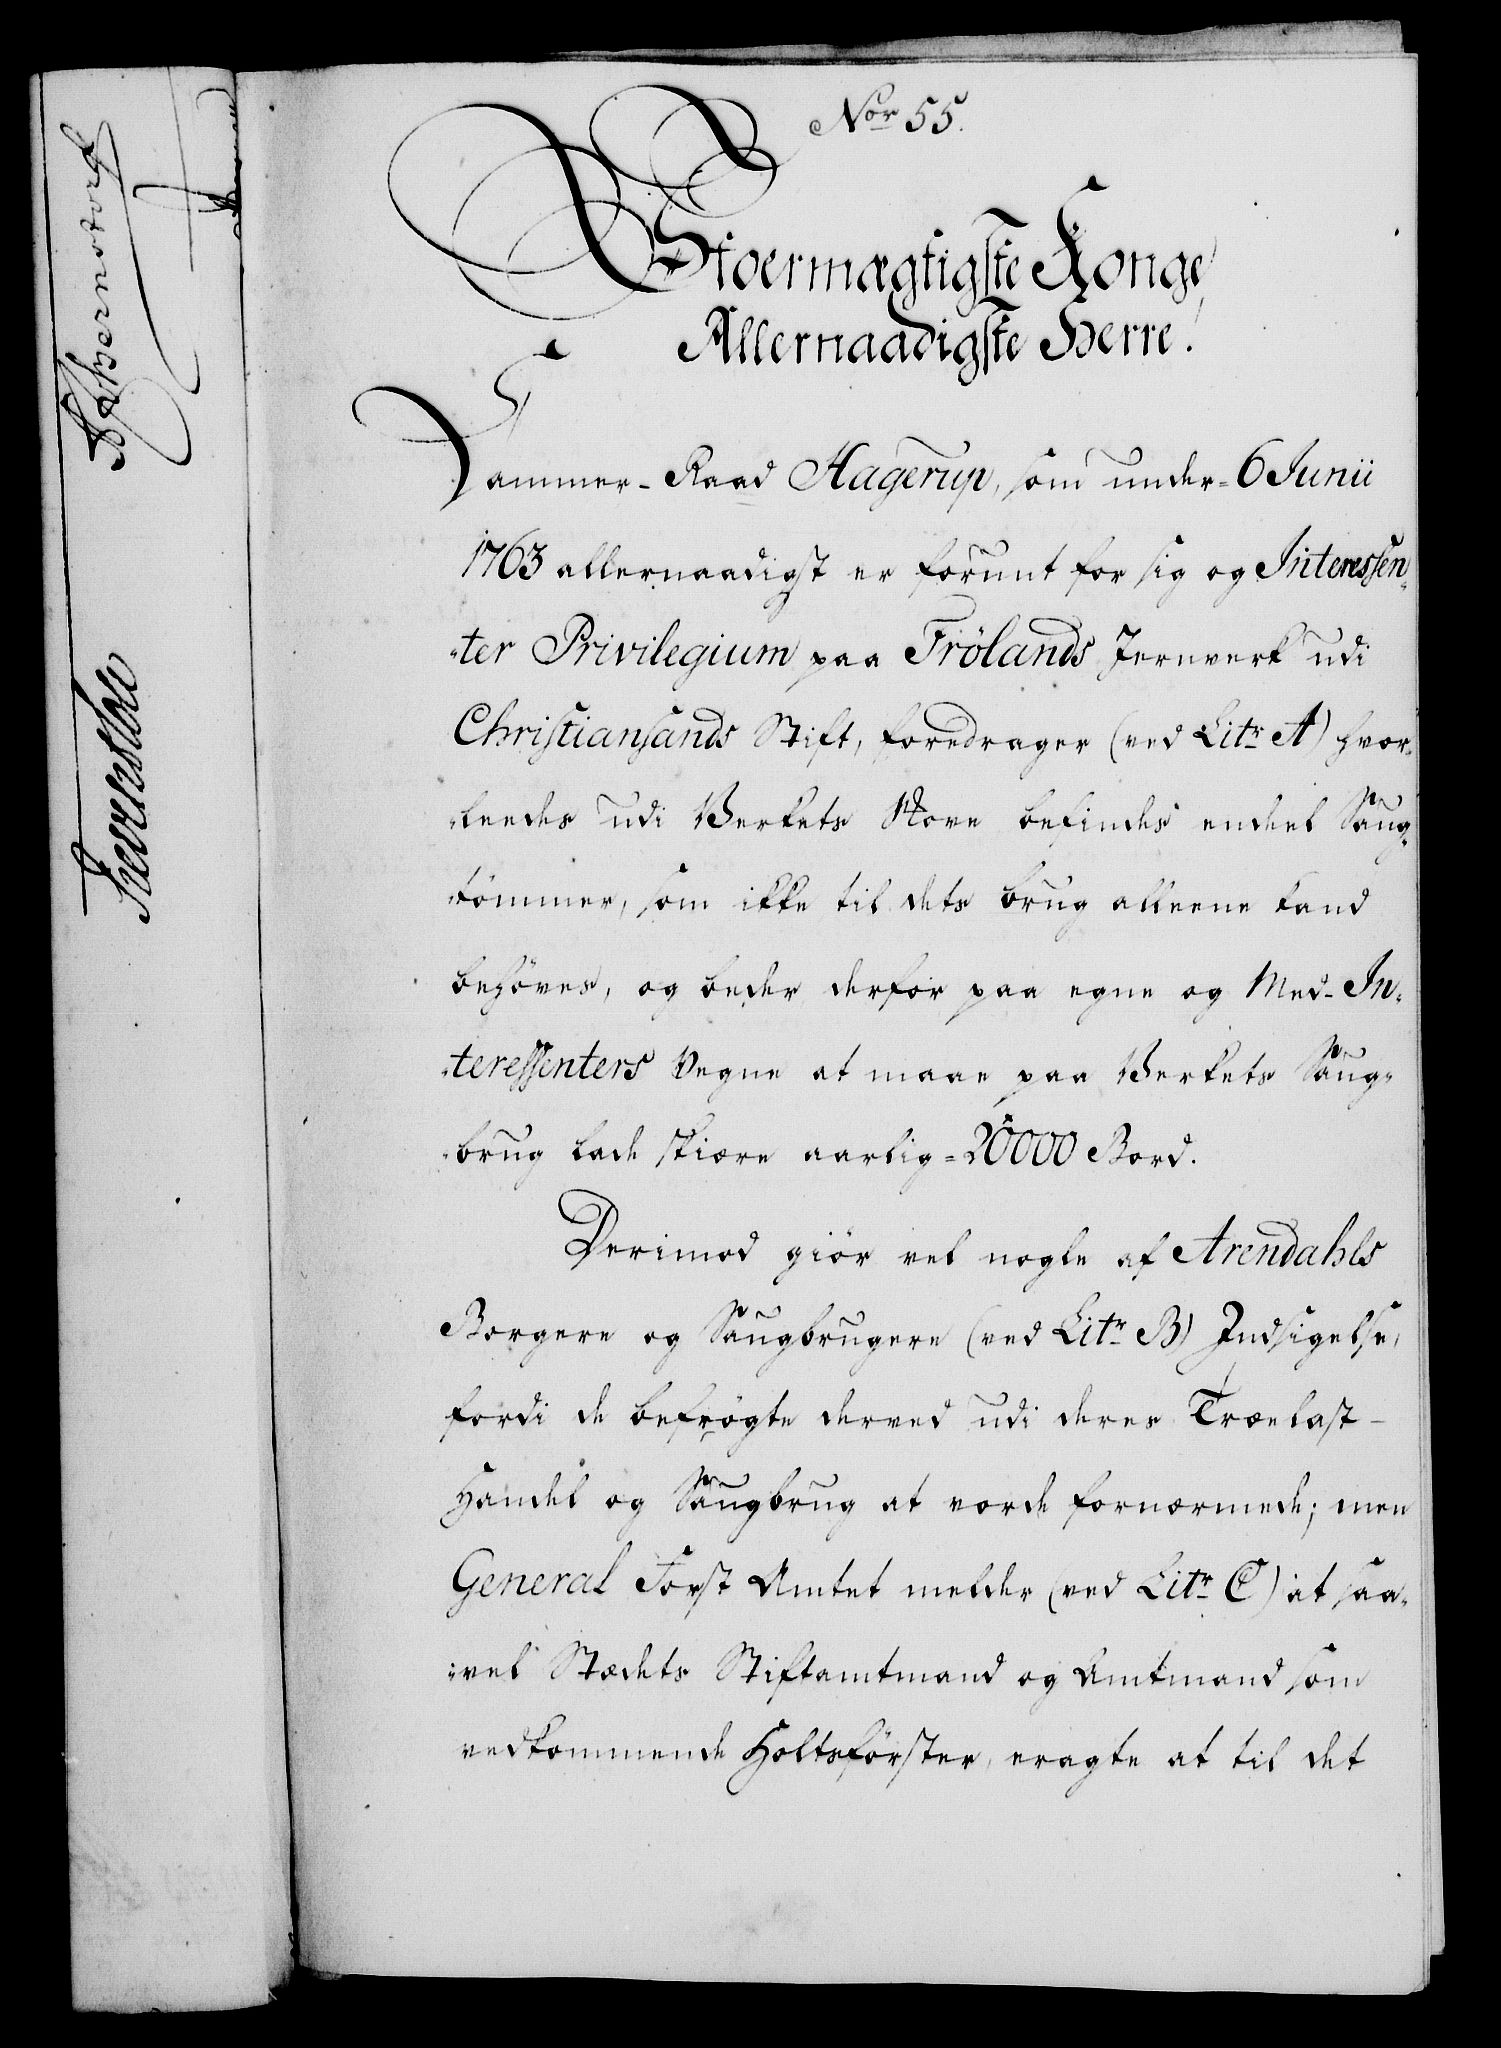 Nor 55.
Stoermægtigste Konge
Allernaadigste Herre!
Kammer-Raad Hagerup, som under 6 Junii
1763 allernaadigst er forunt for sig og Interessen-
ter Privilegium paa Frölands Jernverk udi
Christiansands Stift, foredrager (ved Litr A) hvor-
leedes udi Verkets Skove befindes endeel Saug-
tömmer, som ikke til dets brug alleene kand
behöves, og beder derfor paa egne og Med-In-
teressenters Vegne at maae paa Verkets Saug-
brug lade skiære aarlig 20000 Bord.
Derimod giör vel nogle af Arendahls
Borgere og Saugbrugere (ved Litr B) Indsigelse,
fordi de befrögte derved udi deres Trælast-
Handel og Saugbrug at vorde fornærmede; men
General Forst Amtet melder (ved Litr C) at saa-
vel Stædets Stiftamtmand og Amtmand som
vedkommende Holtsförster, eragte at til det